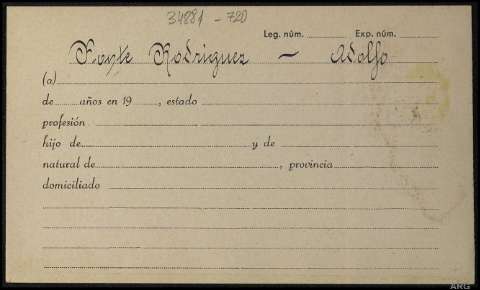 34881-720
Leg. núm. Exp. núm.
Rodriguez - Adolfo
(a)
de años en 19 , estado
profesión
hijo de y de
natural de , provincia
domiciliado
ARG